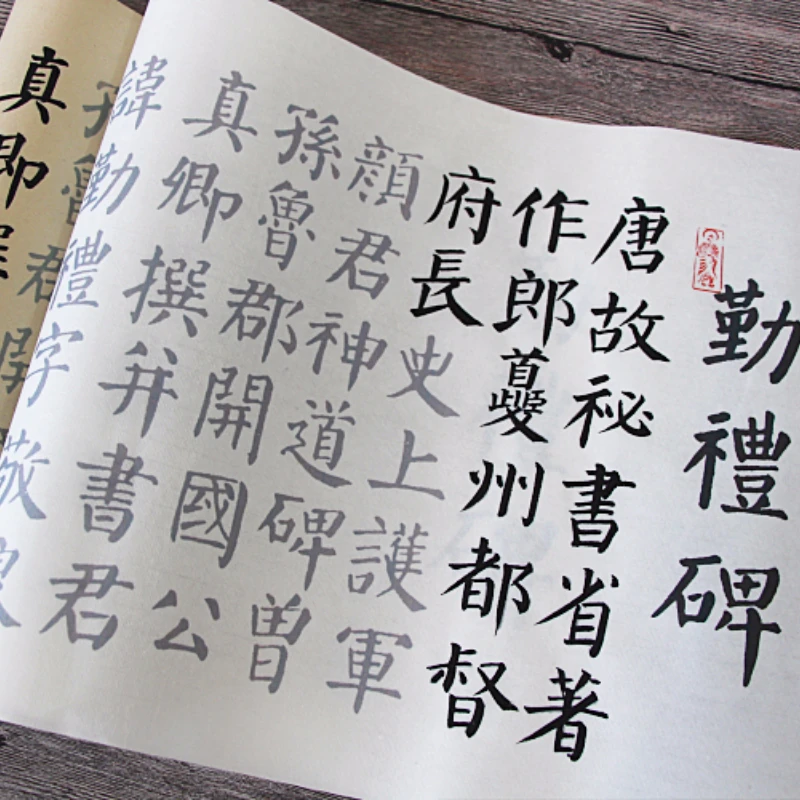 勤禮碑
唐故祕書省著
作郎夔州都督
府長史上護軍
顏君神道碑曾
孫魯郡開國公
真卿撰并書君
諱勤禮字敬
孫魯郡開
真卿撰